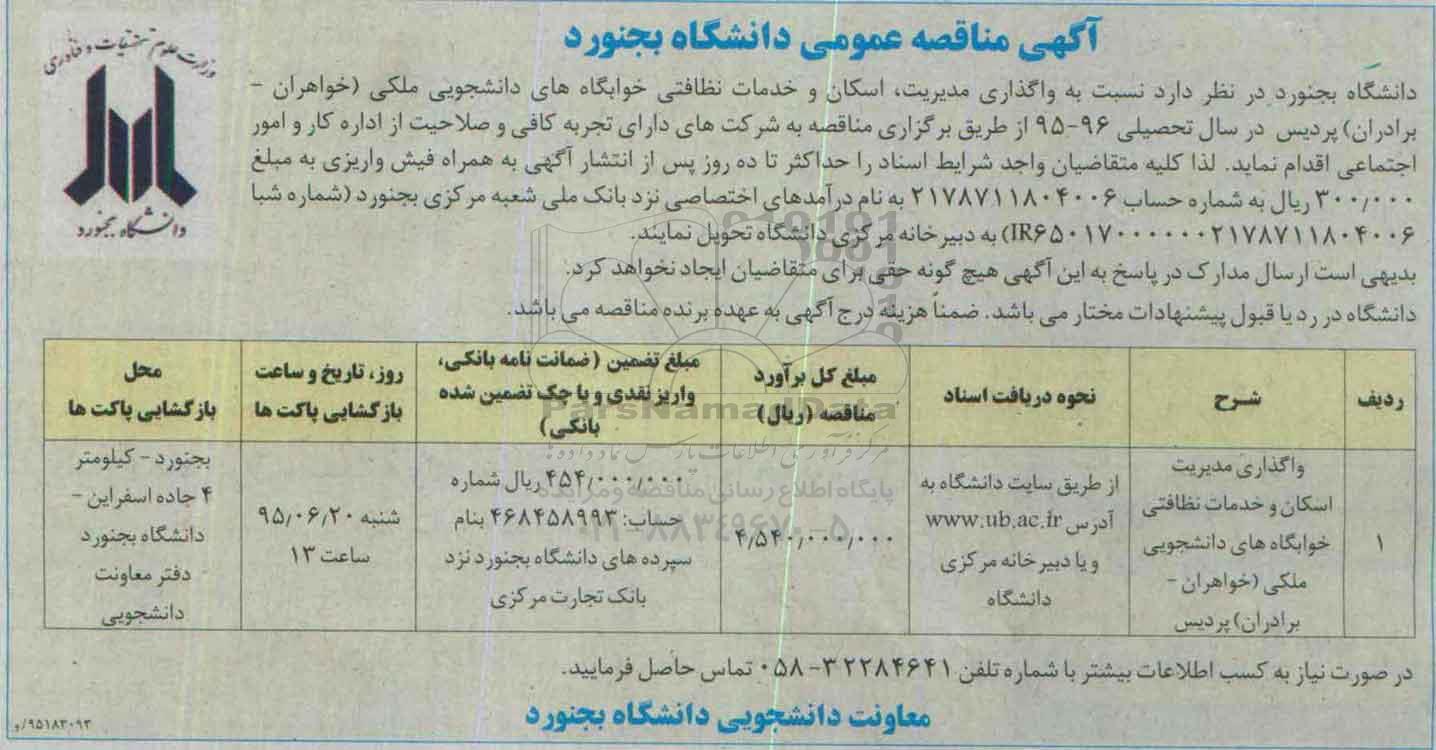 آگهی مناقصه عمومی دانشگاه بجنورد
وزارت علوم تحقیقات و فناوری
دانشگاه بجنورد
دانشگاه بجنورد در نظر دارد نسبت به واگذاری مدیریت، اسکان و خدمات نظافتی خوابگاه های دانشجویی ملکی (خواهران -
برادران) پردیس در سال تحصیلی ۹۶-۹۵ از طریق برگزاری مناقصه به شرکت های دارای تجربه کافی و صلاحیت از اداره کار و امور
اجتماعی اقدام نماید. لذا کلیه متقاضیان واجد شرایط اسناد را حداکثر تا ده روز پس از انتشار آگهی به همراه فیش واریزی به مبلغ
۳۰۰/۰۰۰ ریال به شماره حساب ۲۱۷۸۷۱۱۸۰۴۰۰۶ به نام درآمدهای اختصاصی نزد بانک ملی شعبه مرکزی بجنورد (شماره شبا
IR۶۵۰۱۷۰۰۰۰۰۰۰۲۱۷۸۷۱۱۸۰۴۰۰۶) به دبیرخانه مرکزی دانشگاه تحویل نمایند.
بدیهی است ارسال مدارک در پاسخ به این آگهی هیچ گونه حقی برای متقاضیان ایجاد نخواهد کرد.
دانشگاه در رد یا قبول پیشنهادات مختار می باشد. ضمناً هزینه درج آگهی به عهده برنده مناقصه می باشد.
ردیف
شـرح
نحوه دریافت اسناد
مبلغ کل برآورد
مناقصه (ریال)
مبلغ تضمین (ضمانت نامه بانکی،
واریز نقدی و یا چک تضمین شده
بانکی)
روز، تاریخ و ساعت
بازگشایی پاکت ها
محل
بازگشایی پاکت ها
۱
واگذاری مدیریت
اسکان و خدمات نظافتی
خوابگاه های دانشجویی
ملکی (خواهران -
برادران) پردیس
از طریق سایت دانشگاه به
آدرس www.ub.ac.ir
و یا دبیرخانه مرکزی
دانشگاه
۴/۵۴۰/۰۰۰/۰۰۰
۴۵۴/۰۰۰/۰۰۰ ریال شماره
حساب: ۴۶۸۴۵۸۹۹۳ بنام
سپرده های دانشگاه بجنورد نزد
بانک تجارت مرکزی
شنبه ۹۵/۰۶/۲۰
ساعت ۱۳
بجنورد - کیلومتر
۴ جاده اسفراین -
دانشگاه بجنورد
دفتر معاونت
دانشجویی
ParsNamadData
پایگاه اطلاع رسانی مناقصه و مزایده
۰۲۱-۸۸۳۴۹۶۷۰-۵
در صورت نیاز به کسب اطلاعات بیشتر با شماره تلفن ۳۲۲۸۴۶۴۱-۰۵۸ تماس حاصل فرمایید.
معاونت دانشجویی دانشگاه بجنورد
۹۵۱۸۳۰۹۳/و